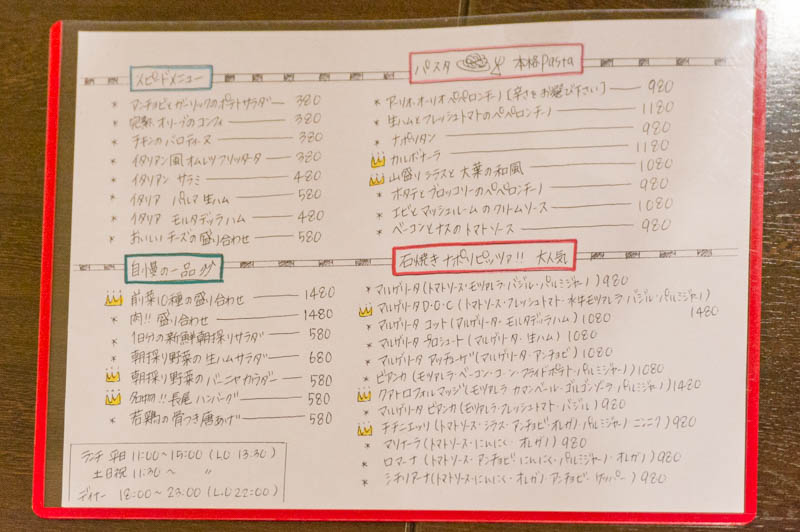 スピードメニュー
* アンチョビとガーリックのポテトサラダー 380
* 完熟オリーブのコンフィ 380
* チキンのバロティーヌ 380
* イタリアン風オムレツ フリッタータ 380
* イタリアン サラミ 480
* イタリア パルマ生ハム 580
* イタリア モルタデッラハム 480
* おいしいチーズの盛り合わせ 580
自慢の一品
前菜10種の盛り合わせ 1480
* 肉!! 盛り合わせ 1480
* 1日分の新鮮朝採りサラダ 580
* 朝採り野菜の生ハムサラダー 680
朝採り野菜のバーニャカウダー 580
名物!! 長尾ハンバーグ 580
* 若鶏の骨つき唐あげ 580
ランチ 平日 11:00〜15:00 (L.O:13:30)
土日祝 11:30〜 〃
ディナー 18:00〜23:00 (L.O22:00)
パスタ 本格Pasta
* アーリオ・オーリオ ペペロンチーノ [辛さをお選び下さい] 980
* 生ハムとフレッシュトマトのペペロンチーノ 1180
* ナポリタン 980
カルボナーラ 1180
山盛りシラスと大葉の和風 1080
* ポテトとブロッコリーのペペロンチーノ 980
* エビとマッシュルームのクリームソース 1080
* ベーコンとナスのトマトソース 980
石焼きナポリピッツァ!! 大人気
* マルゲリータ (トマトソース・モツァレラ・バジル・パルミジャーノ) 980
マルゲリータD・O・C (トマトソース・フレッシュトマト・水牛モツァレラ バジル・パルミジャーノ) 1480
* マルゲリータ コット (マルゲリータ・モルタデッラハム) 1080
* マルゲリータ プロシュート (マルゲリータ・生ハム) 1080
* マルゲリータ アッチューガ (マルゲリータ・アンチョビ) 1080
* ビアンカ (モツァレラ・ベーコン・コーン・フライドポテト・パルミジャーノ) 1080
クアトロフォルマッジ (モツァレラ カマンベール・ゴルゴンゾーラ パルミジャーノ) 1480
* マルゲリータ ビアンカ (モツァレラ・フレッシュトマト・バジル) 980
チチニエッリ (トマトソース・シラス・アンチョビ オレガノ パルミジャーノ ニンニク) 980
* マリナーラ (トマトソース・にんにく・オレガノ) 980
* ロマーナ (トマトソース・アンチョビ にんにく・パルミジャーノ・オレガノ) 980
* シチリアーナ (トマトソース・にんにく・オレガノ・アンチョビー・ケッパー) 980